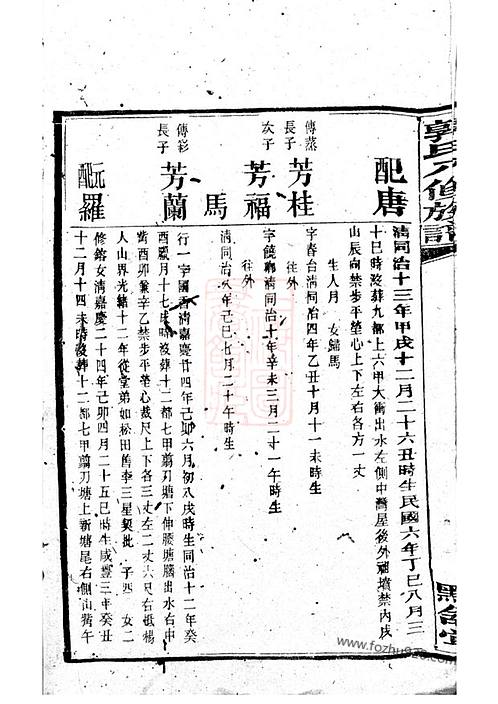 郭氏六修族譜
配唐
清同治十三年甲戌十二月二十六丑時生民國六年丁巳八月三
十巳時沒葬九都上六甲大衝出水左側中灣屋後外祖墳禁內戌
山辰向禁步平塋心上下左右各方一丈
生人月 女歸馬
傳蒸
長子
芳桂
字春台清同治四年乙丑十月十一未時生
往外
次子
芳福
字饒卿清同治十年辛未三月二十一午時生
往外
馬
清同治八年己巳七月二十午時生
傳彩
長子
芳蘭
行一字國 清嘉慶廿四年己卯六月初八戌時生同治十二年癸
酉 月十七戌時沒葬十二都七甲翦刃塘下伸腰塘 出水右中
酉卯兼辛乙禁步平塋心裁尺上下各三丈左二丈 尺右 楊
人山界光緒十二年從堂弟如松田售李三星契批 子四 女二
元配
羅
修鎔女清嘉慶二十四年己卯四月二十五巳時生咸豐三年癸丑
十二月十四未時沒葬十二都七甲翦刃塘上新塘尾右側山 午
www.fozhu920.com